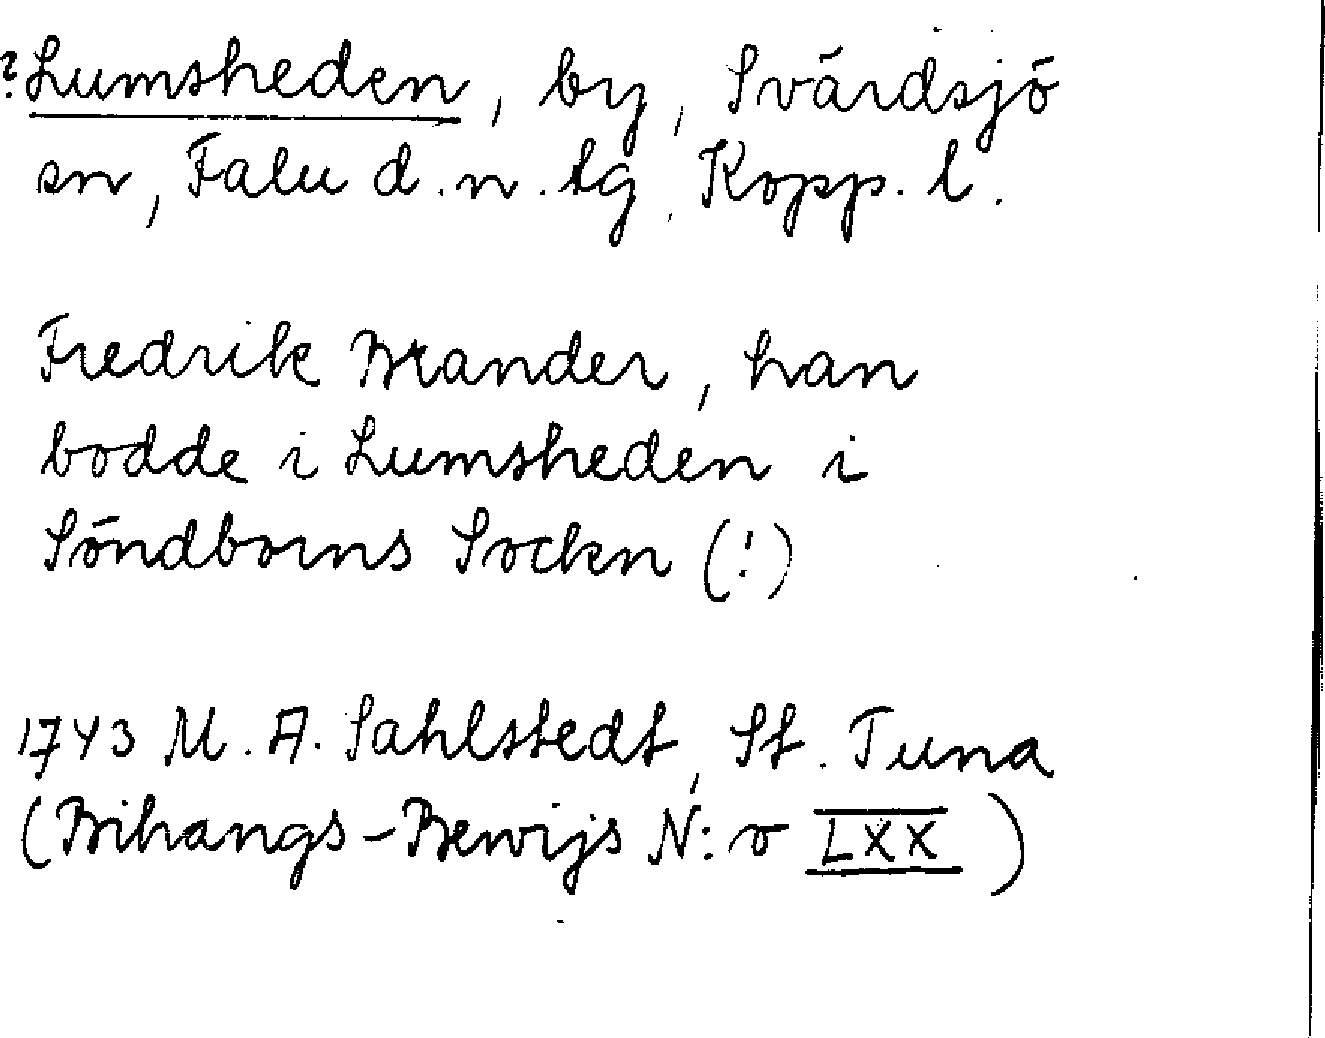 ?Lumsheden, by, Svärdsjö
sn, Falu d. n. tg, Kopp. l.
Fredrik Brander, han
bodde i Lumsheden i
Söndborns Sockn (!)
1743 M. A. Sahlstedt, St. Tuna
(Bihangs-Bewijs N:o LXX)